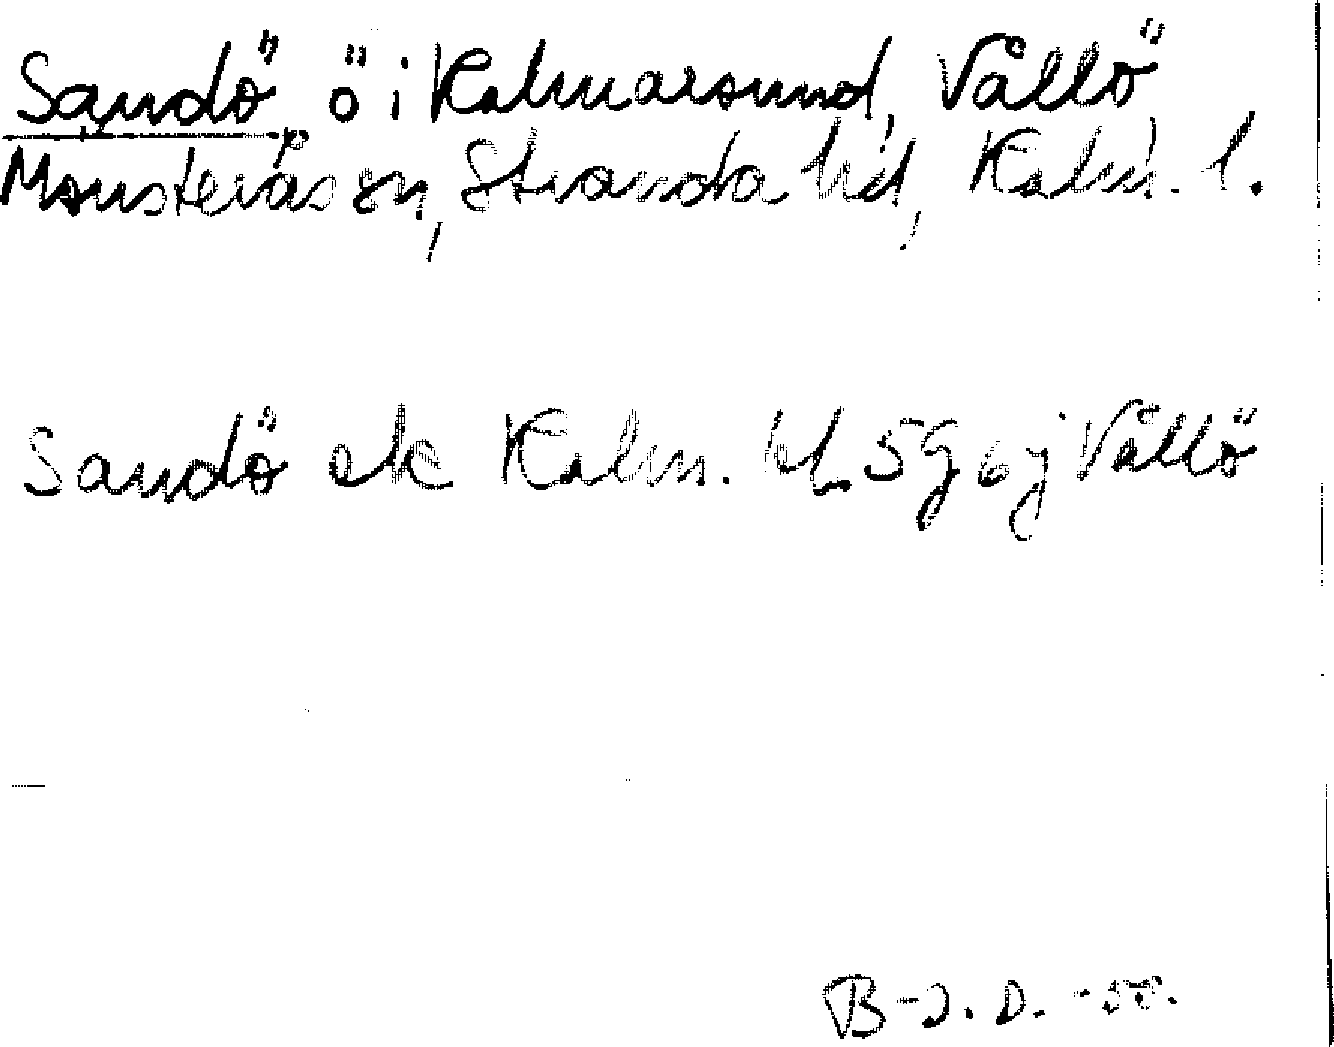 Sandö, ö i Kalmarsund, Vållö
Mönsterås sn, Stranda hd, Kalm. l.
Sandö ek Kalm. bl 5G6j Vållö
B-J. D. -55.